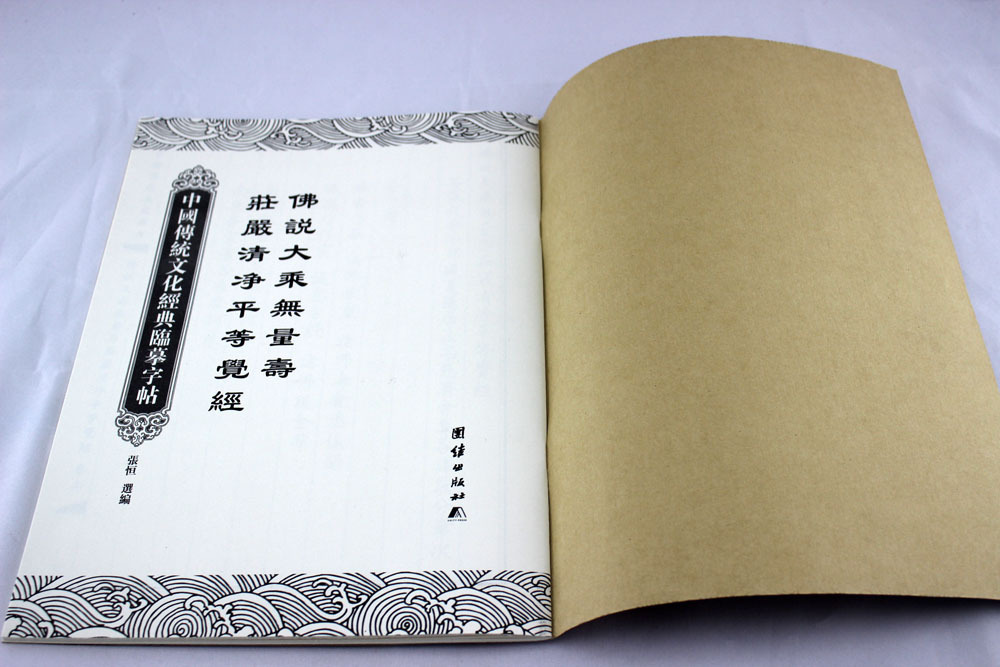 佛説大乘無量壽
莊嚴清净平等覺經
中國傳統文化經典臨摹字帖
張恒 選編
团结出版社
UNITY PRESS